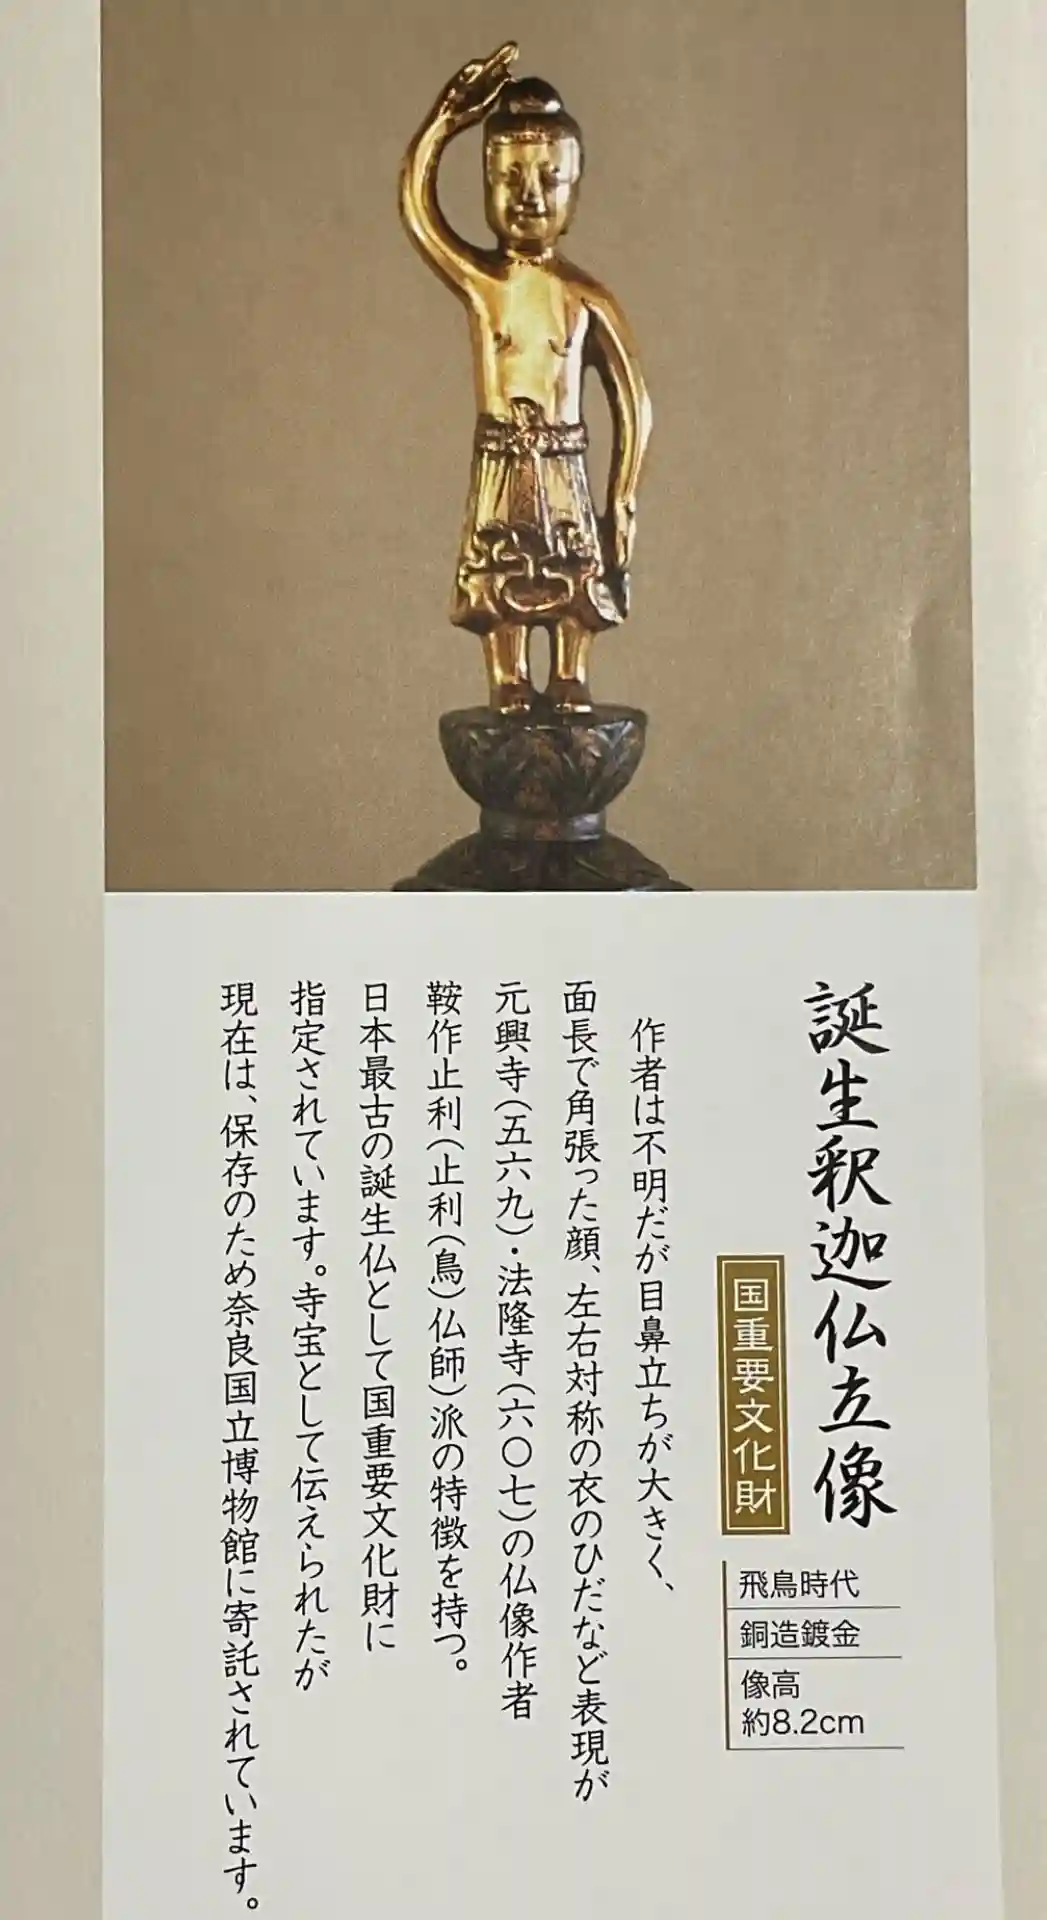 誕生釈迦仏立像
国重要文化財
飛鳥時代
銅造鍍金
像高
約8.2cm
作者は不明だが目鼻立ちが大きく、
面長で角張った顔、左右対称の衣のひだなど表現が
元興寺(五六九)・法隆寺(六〇七)の仏像作者
鞍作止利(止利(鳥)仏師)派の特徴を持つ。
日本最古の誕生仏として国重要文化財に
指定されています。寺宝として伝えられたが
現在は、保存のため奈良国立博物館に寄託されています。